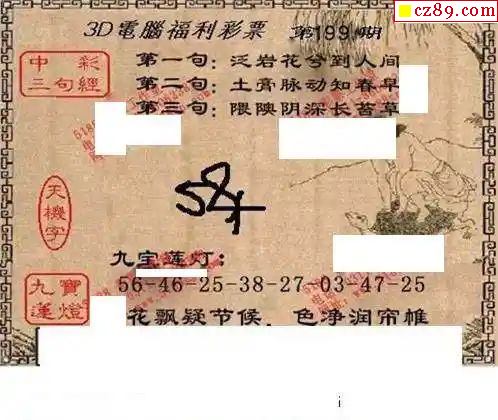 cz89.com
3D電腦福利彩票 第199期
中彩
三句經
第一句：泛岩花兮到人间
第二句：土膏脉动知春早
第三句：隈隩阴深长苔草
天機字
584
九宝莲灯：
九寶
蓮燈
56-46-25-38-27 03-47-25
花飘疑节候，色净润帘帷
i